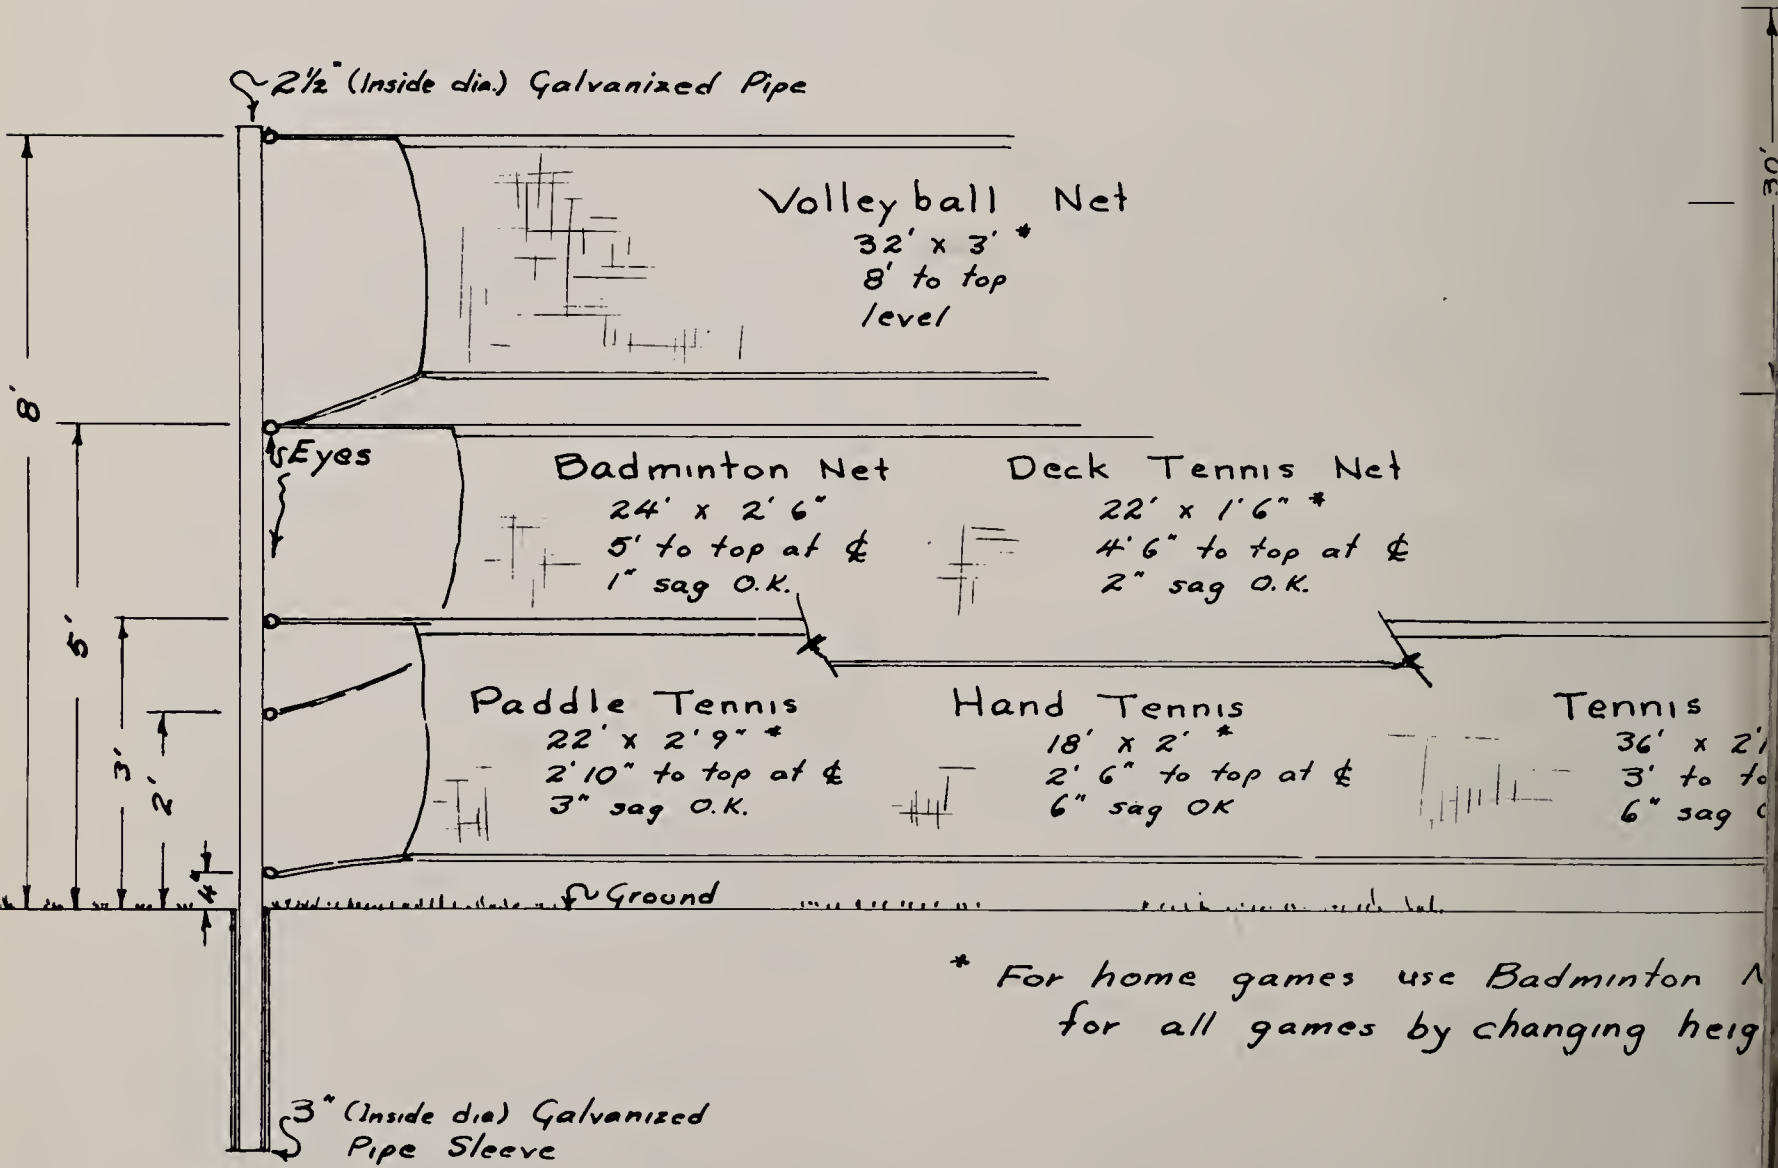 2½" (Inside dia.) Galvanized Pipe
30'
Volley ball Net
32' x 3' *
8' to top
level
8'
Eyes
Badminton Net
24' x 2' 6"
5' to top at ℄
1" sag O.K.
Deck Tennis Net
22' x 1' 6" *
4' 6" to top at ℄
2" sag O.K.
5'
3'
2'
4"
Paddle Tennis
22' x 2' 9" *
2' 10" to top at ℄
3" sag O.K.
Hand Tennis
18' x 2' *
2' 6" to top at ℄
6" sag OK
Tennis
36' x 2'
3' to
6" sag
Ground
* For home games use Badminton
for all games by changing
3" (Inside dia) Galvanized
Pipe Sleeve